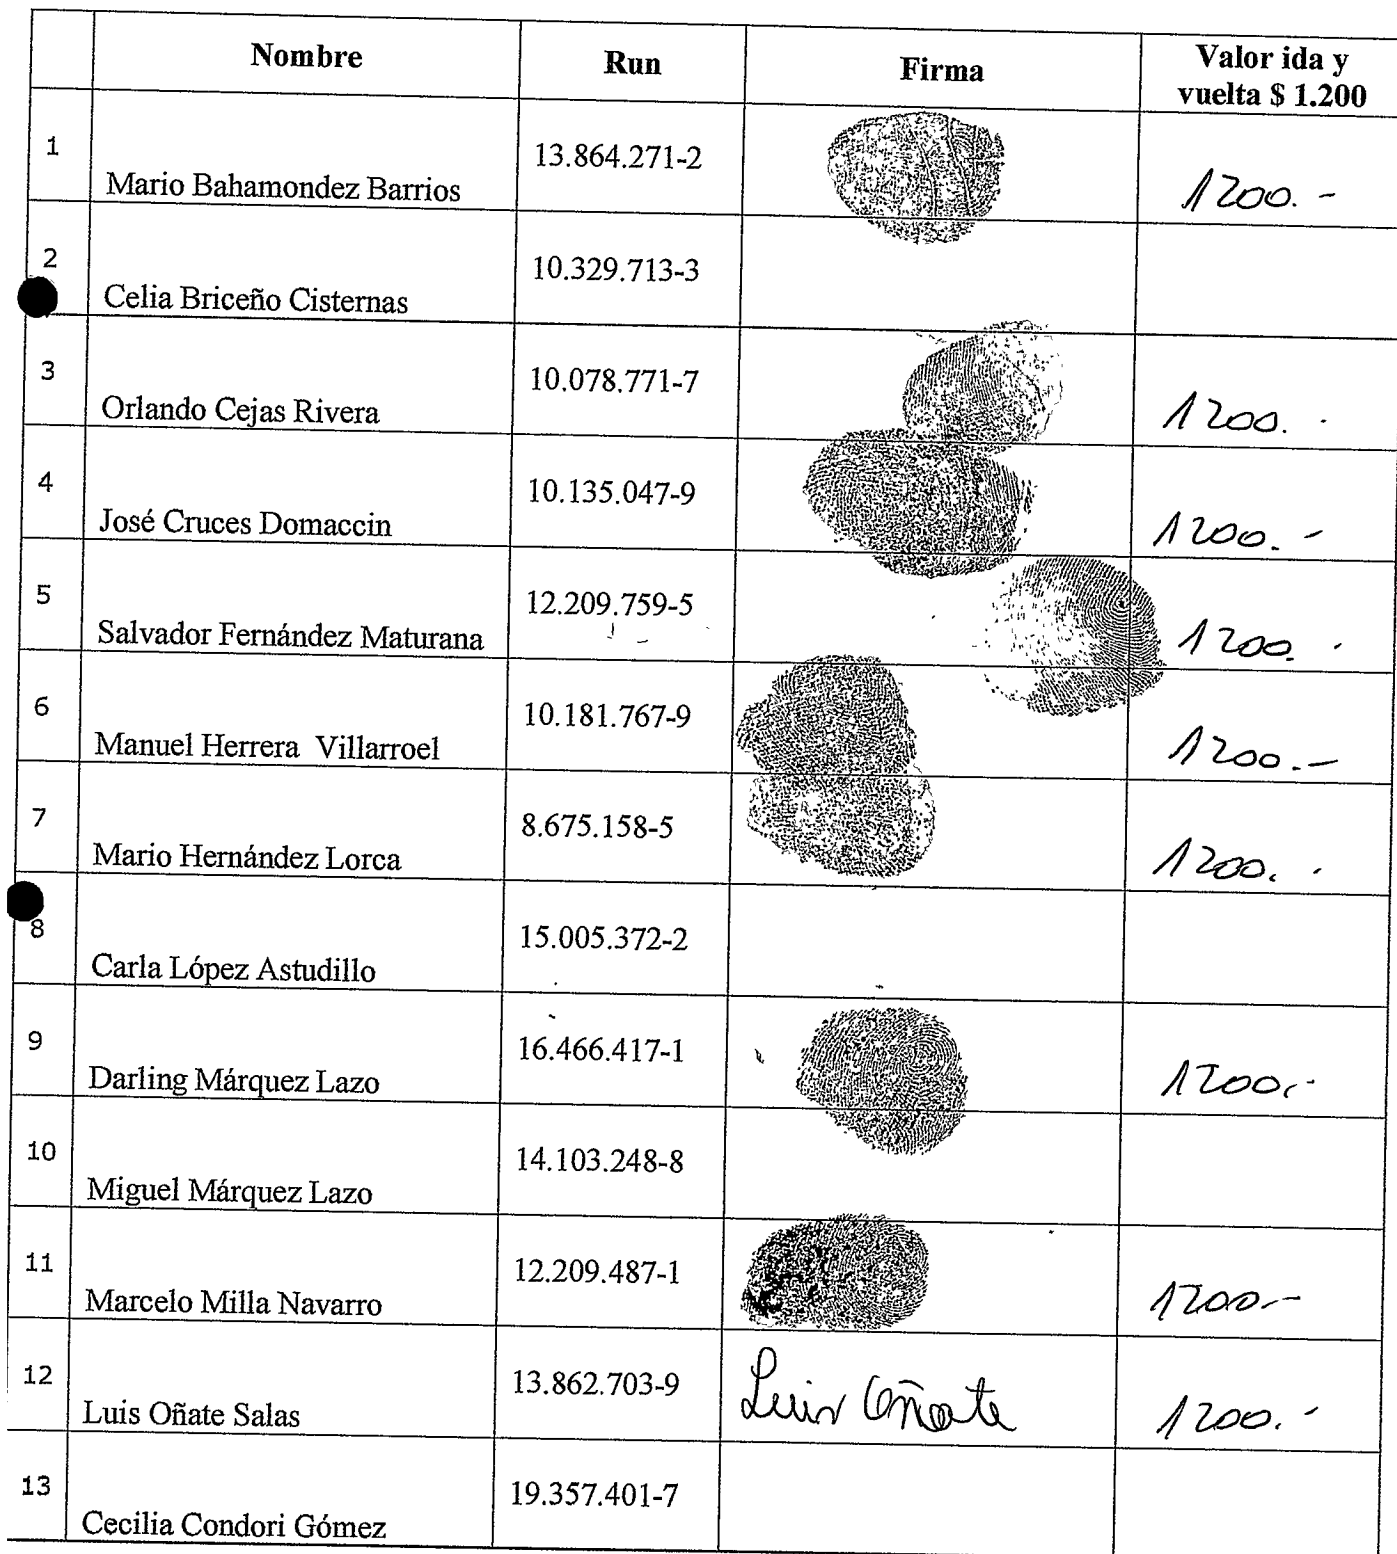 Nombre Run Firma Valor ida y
vuelta $ 1.200
1 Mario Bahamondez Barrios 13.864.271-2 1200.-
2 Celia Briceño Cisternas 10.329.713-3
3 Orlando Cejas Rivera 10.078.771-7 1200.
4 José Cruces Domaccin 10.135.047-9 1200.-
5 Salvador Fernández Maturana 12.209.759-5 1200.
6 Manuel Herrera Villarroel 10.181.767-9 1200.-
7 Mario Hernández Lorca 8.675.158-5 1200.
8 Carla López Astudillo 15.005.372-2
9 Darling Márquez Lazo 16.466.417-1 1200.-
10 Miguel Márquez Lazo 14.103.248-8
11 Marcelo Milla Navarro 12.209.487-1 1200.-
12 Luis Oñate Salas 13.862.703-9 Luis Oñate 1200.-
13 Cecilia Condori Gómez 19.357.401-7